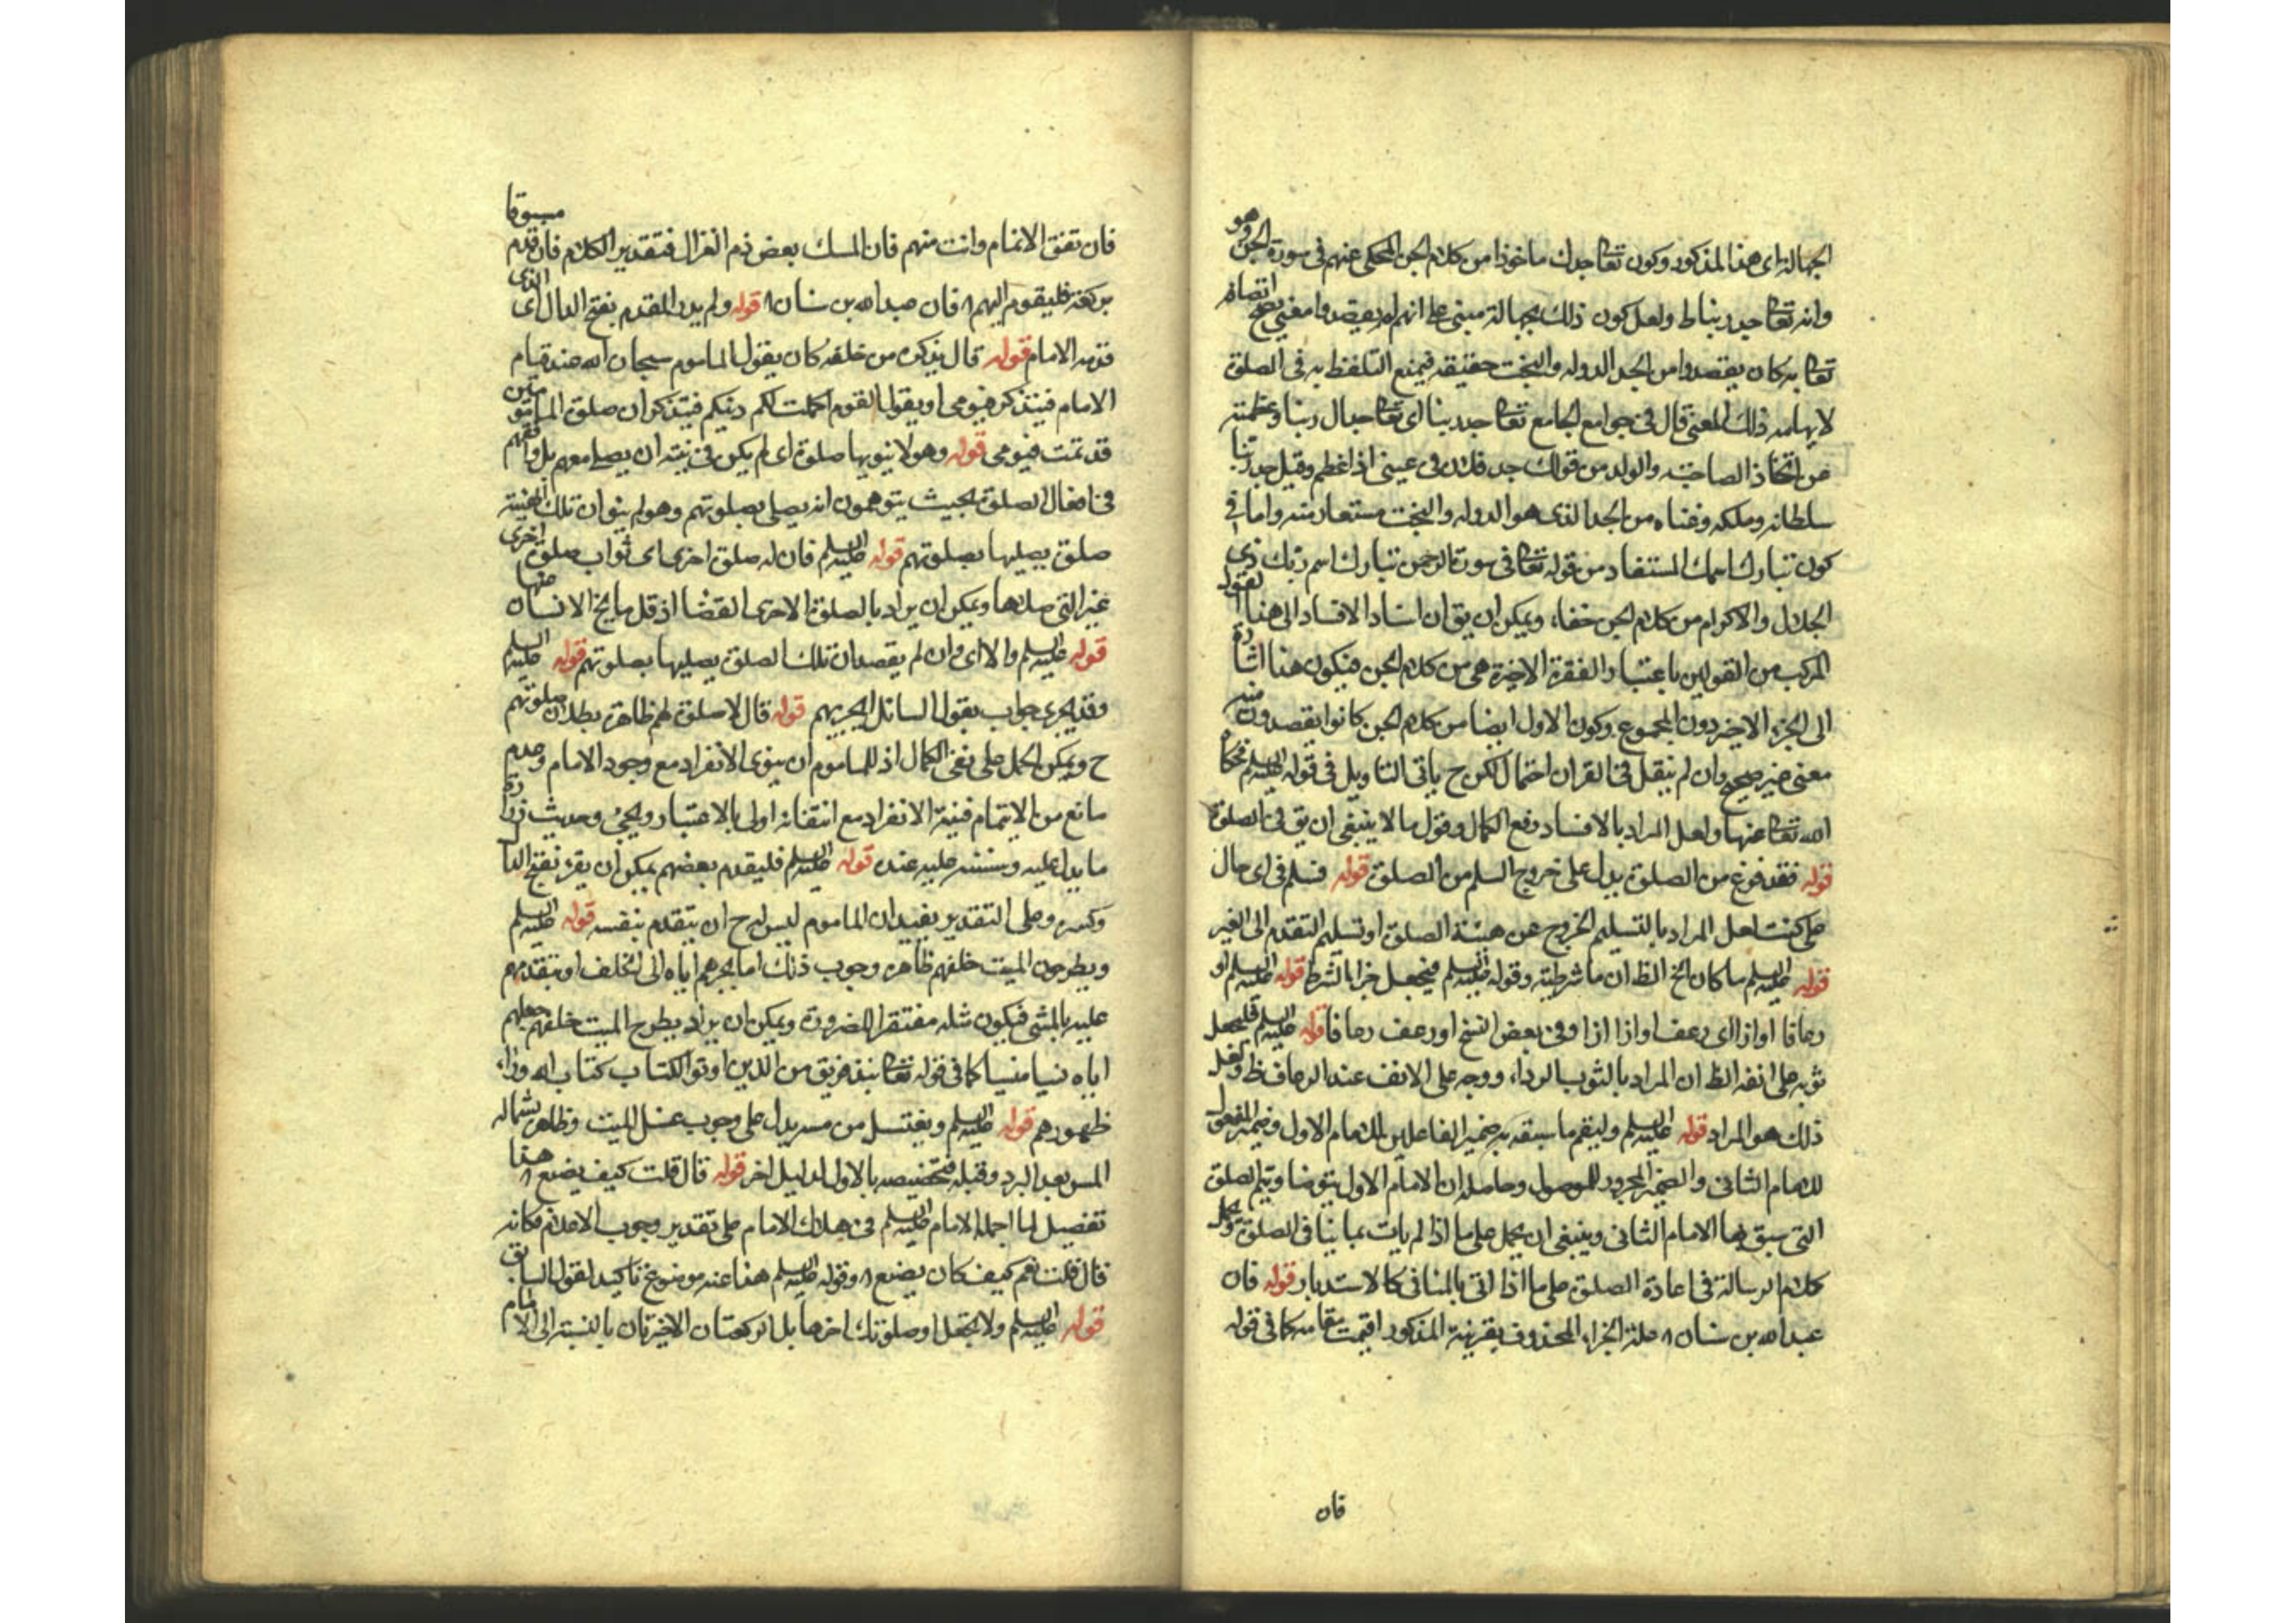 الجهالة اى هذا المذكور وكون تعا جدك ماخوذا من كلام الجن المحكى عنهم فى سورة الجن وهو
وانه تعا جد ربنا ط ولعل كون ذلك بجهالة مبنى على انهم لم يقصدوا معنى يصح اتصافه
تعا به كان يقصدوا من الجد الدولة والبخت حقيقة فيمنع التلفظ به فى الصلوة
لايهامه ذلك المعنى قال فى جوامع الجامع تعا جد ربنا اى تعا جلال ربنا وعظمته
من اتخاذ الصاحبة والولد من قولك جد فلان فى عينى اذا عظم وقيل جد ربنا
سلطانه وملكه وغناه من الجد الذى هو الدولة والبخت مستعار منه واما فى
كون تبارك اسمك المستفاد من قوله تعا فى سورة الرحمن تبارك اسم ربك ذى
الجلال والاكرام من كلام الجن خفاء ويمكن ان يق ان اسناد الافساد الى هذا القول
المركب من القولين باعتبار الفقرة الاخيرة هى من كلام الجن فيكون هذا اشارة
الى الجزء الاخير دون المجموع وكون الاول ايضا من كلام الجن كانوا يقصدون منه
معنى غير صحيح وان لم ينقل فى القران احتمال لكن ح ياتى التاويل فى قوله عليه السلم فحكا
الله تعا عنها ولعل المراد بالافساد رفع الكمال وقول ما لا ينبغى ان يق فى الصلوة
قوله فقد فرغ من الصلوة يدل على خروج السلم من الصلوة قوله فسلم فى اى حال
على كنت لعل المراد بالتسليم الخروج عن هيئة الصلوة او تسليم التقدم الى الغير
قوله عليه السلم ما كان الخ الظ ان ما شرطية وقوله عليه السلم فيجعل جزا بالشرط قوله عليه السلم او
رعافا او ازا اى رعف او ازا ازا وفى بعض النسخ اورعف رعافا قوله عليه السلم فليجعل
ثوبه على انفه الظ ان المراد بالثوب الرداء ووجه على الانف عند الرعاف ظ ولعل
ذلك هو المراد قوله عليه السلم وليقم ما سبقه به ضمير الفاعلين للامام الاول وضمير المفعول
للامام الثانى والضمير المجرور للموصول وحاصله ان الامام الاول يتوضا ويتم الصلوة
التى سبق بها الامام الثانى وينبغى ان يحمل على ما اذا لم يات بما ينافى الصلوة ويحمل
كلام الرسالة فى اعادة الصلوة على ما اذا اتى بالمنافى كالاستدبار قوله فان
عبد الله بن سنان ٨ علة الجزاء المحذوف بقرينة المذكور اقيمت مقامه كما فى قوله
فان
فان تفق الانام وانت منهم فان المسك بعض دم الغزال فتقدير الكلام فان قدم مسبوقا
بركعة فليقوم اليهم ٨ فان عبد الله بن سنان ٨ قوله ولم يدر المقدم بفتح الدال اى الذى
قدمه الامام قوله قال يذكره من خلفه كان يقول الماموم سبحان الله عند قيام
الامام فيتذكر فيومى او يقول القوم اكملت لكم دينكم فيتذكر ان صلوة المامومين
قد تمت فيومى قوله وهو لا ينويها صلوة اى لم يكن فى نيته ان يصلى معهم بل وافقهم
فى افعال الصلوة بحيث يتوهمون انه يصلى بصلوتهم وهو لم ينو ان تلك الهيئة
صلوة يصليها بصلوتهم قوله عليه السلم فان له صلوة اخرى اى ثواب صلوة اخرى
غير التى صلاها ويمكن ان يراد بالصلوة الاخرى القضا اذ قل ما يخ الانسان منها
قوله عليه السلم والا اى وان لم يقصد ان تلك الصلوة يصليها بصلوتهم قوله عليه السلم
وقد يجرى جواب بقول السائل ايجزيهم قوله قال لا صلوة لهم ظاهره بطلان صلوتهم
ح ويمكن الحمل على نفى الكمال اذ للماموم ان ينوى الانفراد مع وجود الامام وعدم
مانع من الايتمام فنية الانفراد مع انتفائه اولى بالاعتبار ويجئ وحديث زرارة
ما يدل عليه وسننبه عليه عنده قوله عليه السلم فليقدم بعضهم يمكن ان يقرء بفتح الدا
وكسره وعلى التقدير يفيد ان الماموم ليس له ح ان يتقدم بنفسه قوله عليه السلم
ويطرحون الميت خلفهم ظاهره وجوب ذلك اما بجرهم اياه الى الخلف او بتقدمهم
عليه بالمشى فيكون مثله مغتفرا للضرورة ويمكن ان يراد بطرح الميت خلفهم جعلهم
اياه نسيا منسيا كما فى قوله تعا نبذ فريق من الذين اوتوا الكتاب كتاب الله وراء
ظهورهم قوله عليه السلم ويغتسل من مسه يدل على وجوب غسل الميت وظاهره شماله
المس بعد البرد وقبله فتخصيصه بالاول لدليل اخر قوله قال قلت كيف يصنع ٨ هذا
تفصيل لما اجمله الامام عليه السلم فى هلاك الامام على تقدير وجوب الاعلام فكانه
قال قلت نعم كيف كان يصنع ٨ وقوله عليه السلم هذا عنه موضوع تاكيد لقول السابق
قوله عليه السلم ولا تجعل اول صلوتك اخرها بل الركعتان الاخيرتان بالنسبة الى الامام